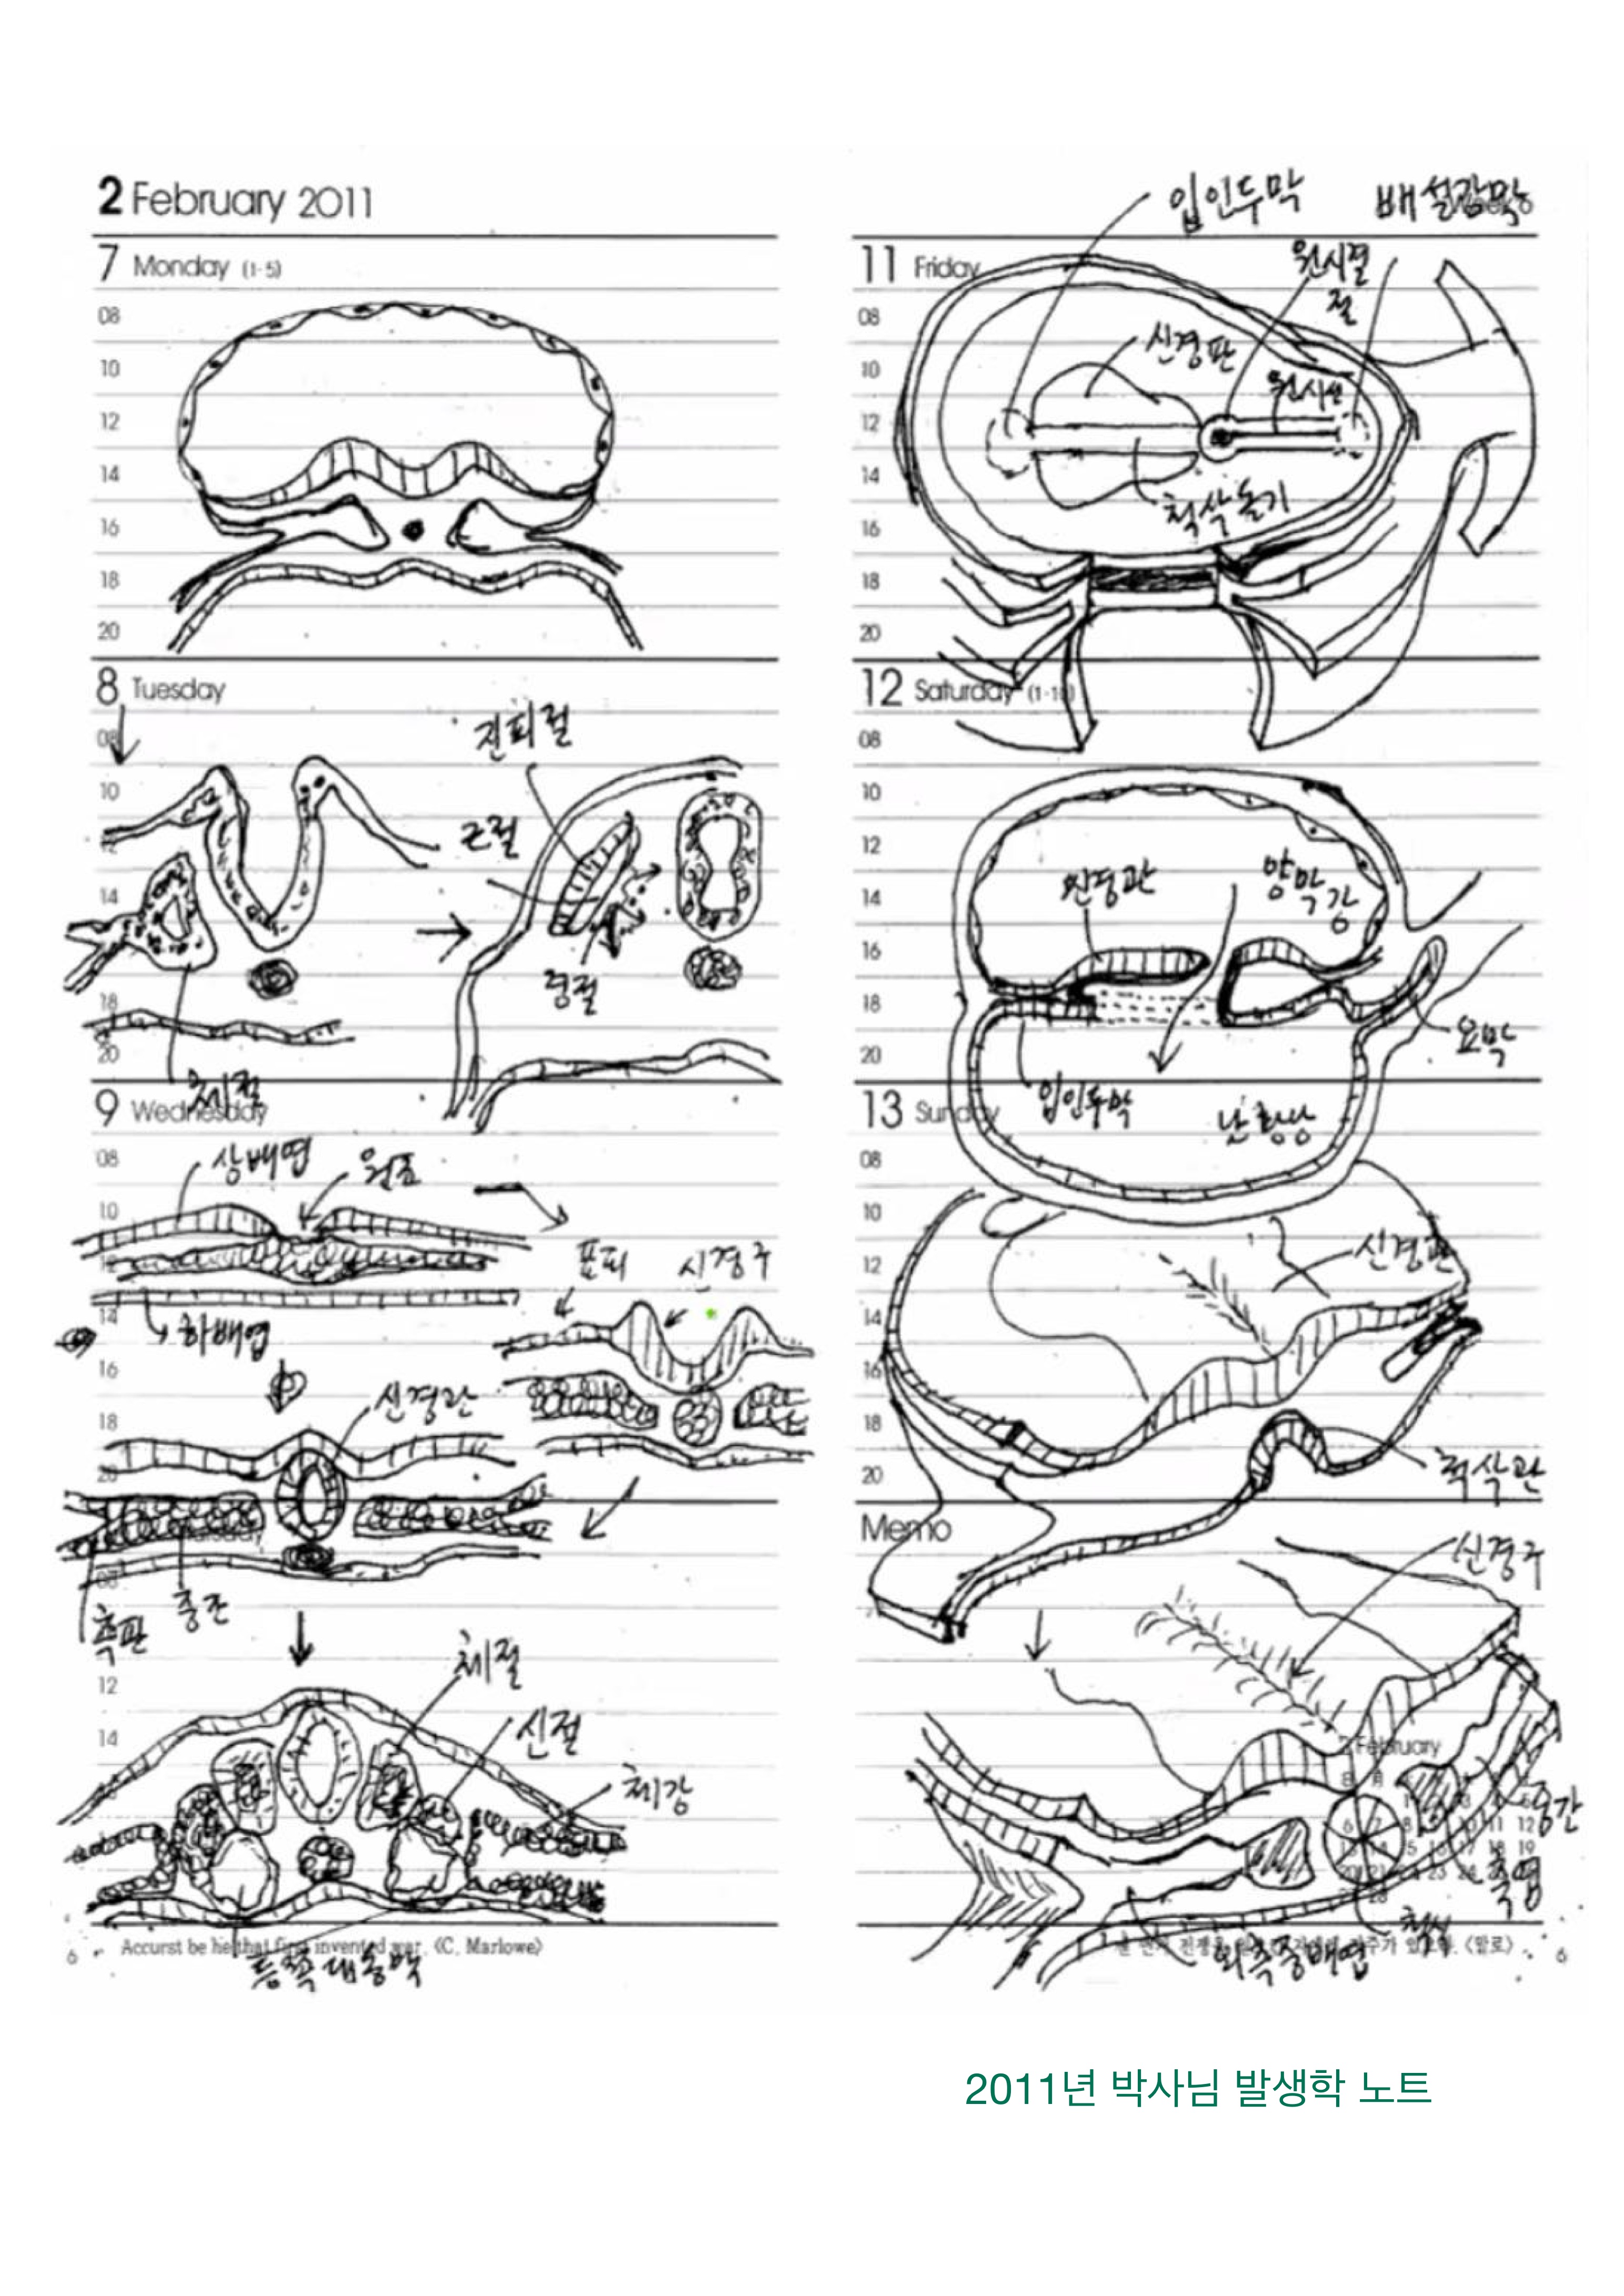 2 February 2011
7 Monday (1·5)
08
10
12
14
16
18
20
8 Tuesday
08
10
12
14
18
20
진피절
근절
경절
체절
9 Wednesday
08
10
12
14
16
18
20
상배엽
원조
하배엽
표피
신경구
신경관
측판
중간
12
14
체절
신절
체강
등쪽대동맥
6
Accurst be he that first invented war. 《C. Marlowe》
입인두막
배설강막
11 Friday
08
10
12
14
16
18
20
원시결절
신경판
원시선
척삭돌기
12 Saturday (1·10)
08
10
12
14
16
18
20
신경관
양막강
요막
입인두막
난황낭
13 Sunday
08
10
12
14
16
18
20
신경관
척삭관
Memo
신경구
2 February
중간
척삭
〈말로〉
6
2011년 박사님 발생학 노트